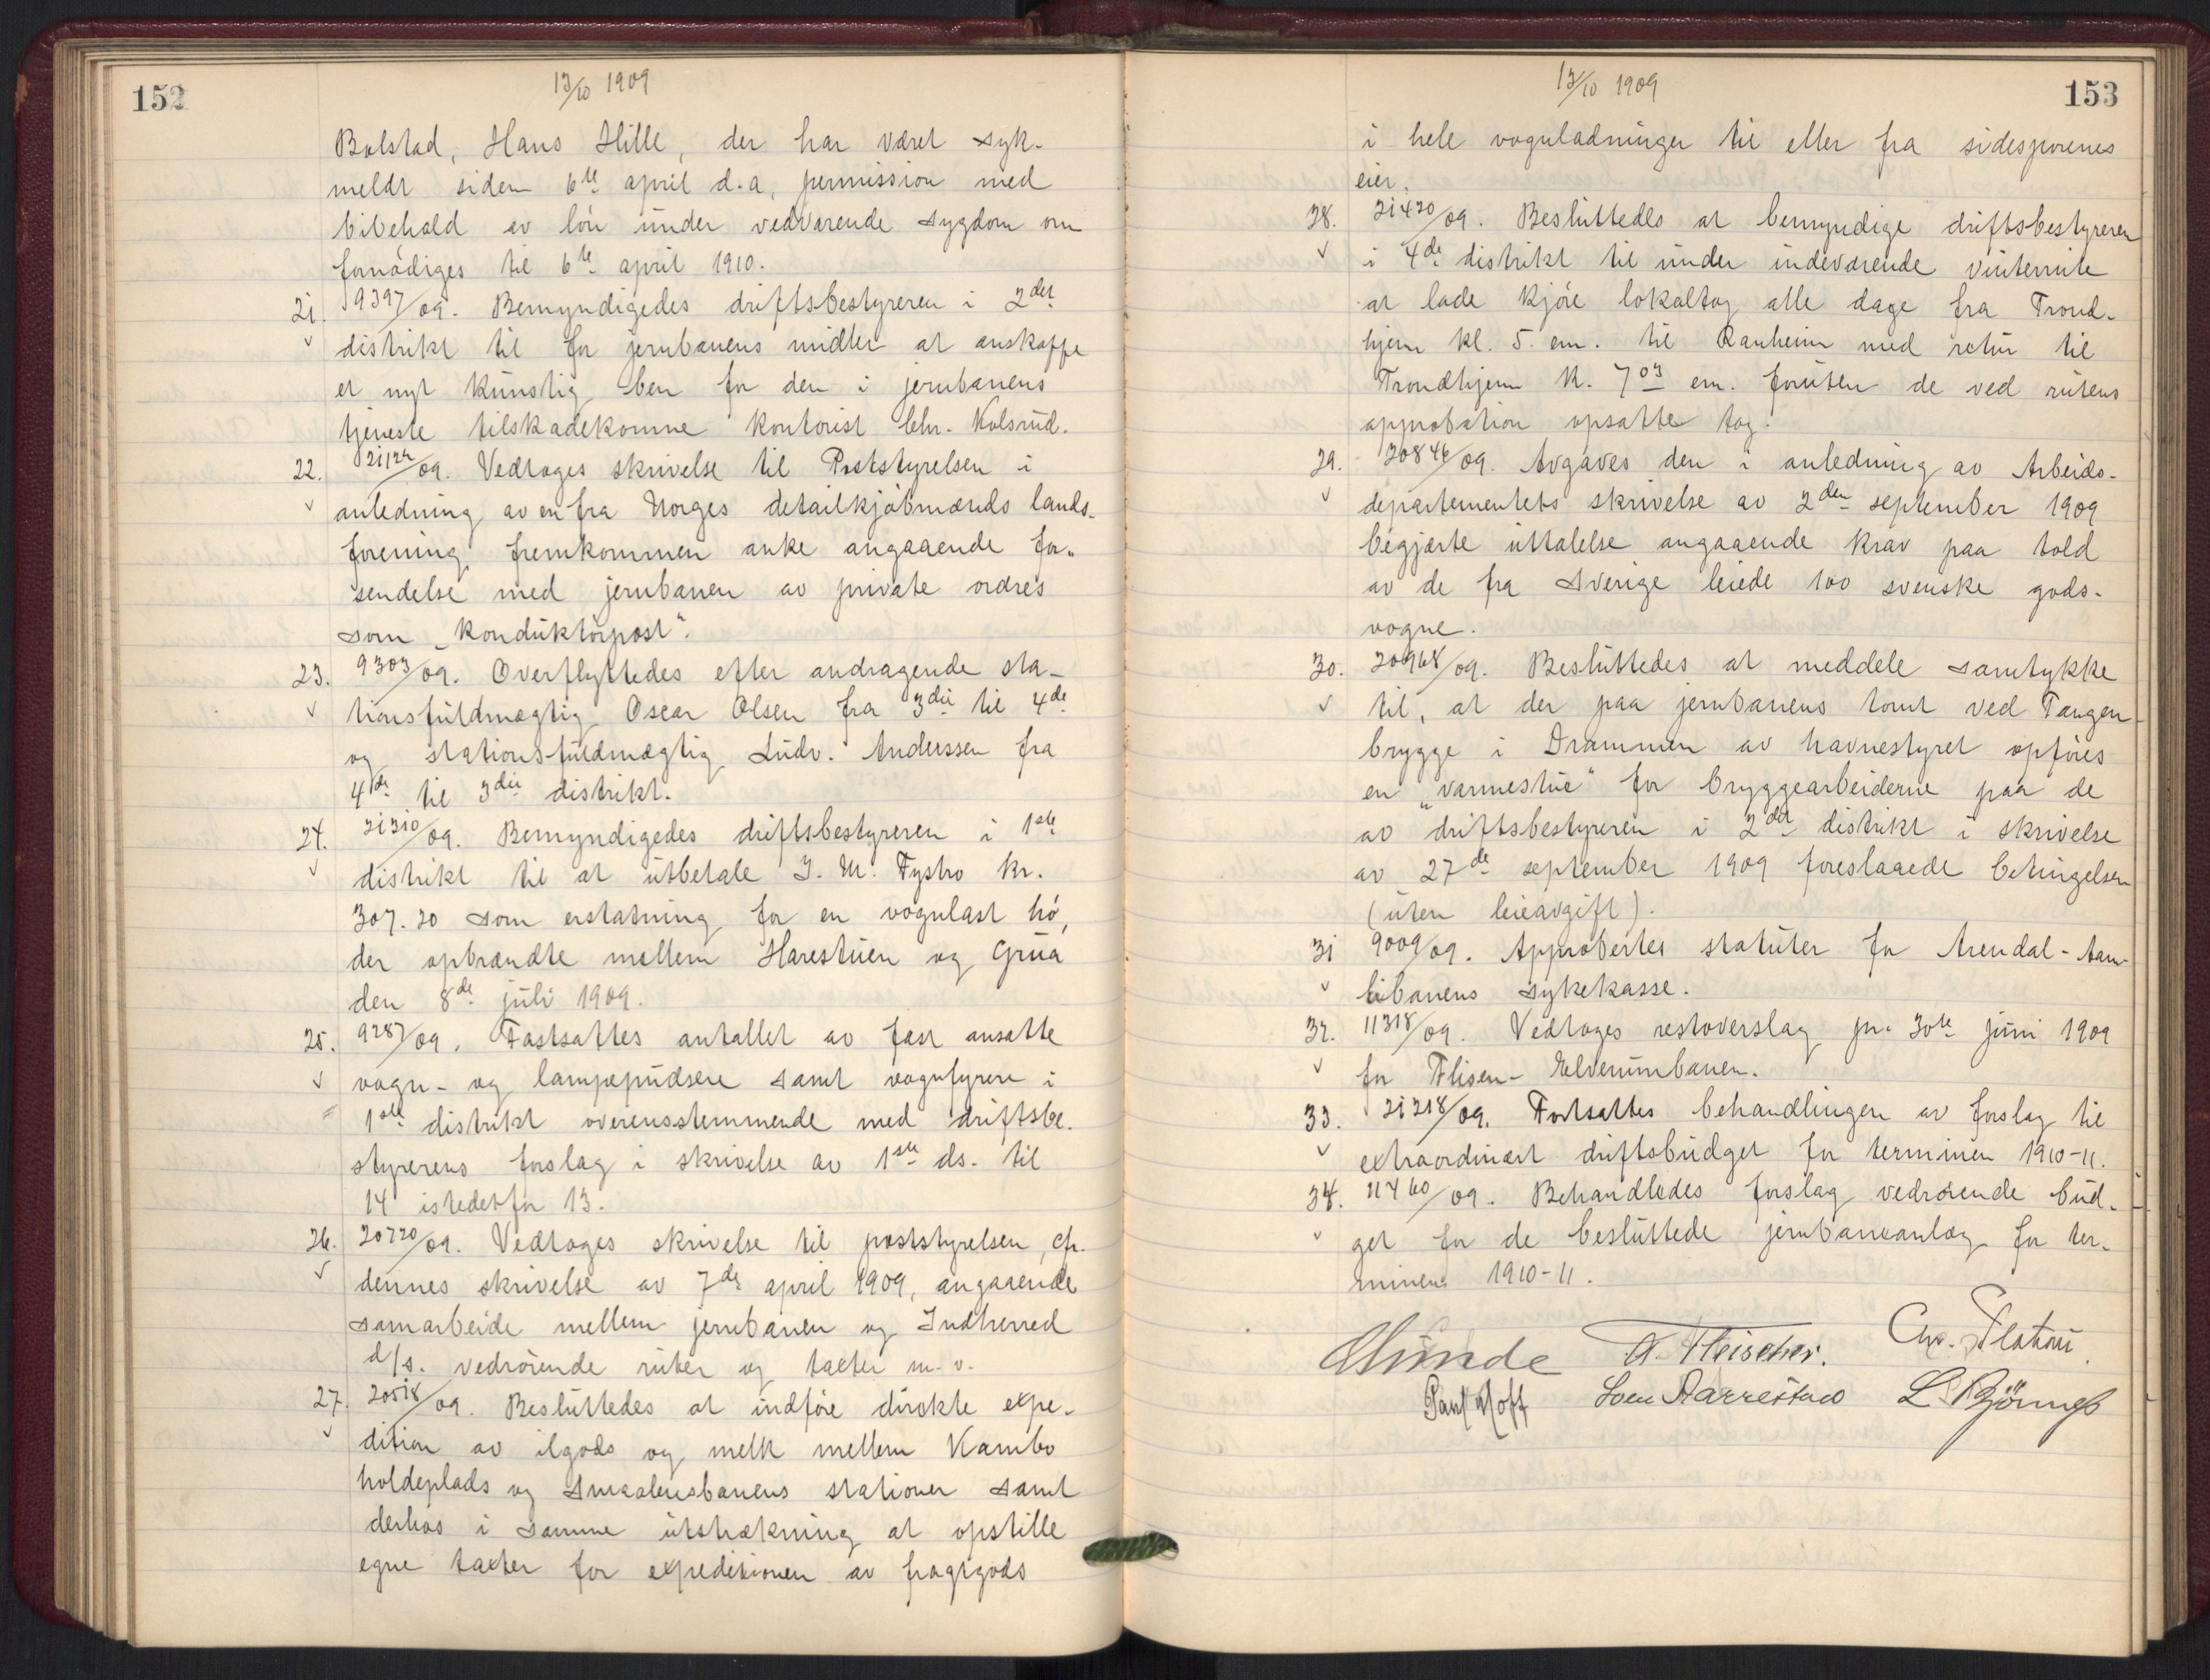 152
13/10 1909
Bolstad, Hans Hille, der har været syk-
meldt siden 6te april d.a, permission med
bibehold av løn under vedvarende sygdom om
fornødiges til 6te april 1910.
21. 9397/09. Bemyndigedes driftsbestyreren i 2det
distrikt til for jernbanens midler at anskaffe
et nyt kunstig ben for den i jernbanens
tjeneste tilskadekomne kontorist Chr. Kolsrud.
22. 21124/09. Vedtoges skrivelse til Poststyrelsen i
anledning av en fra Norges detailkjøbmænds lands-
forening fremkommen anke angaaende for-
sendelse med jernbanen av private ordres
som "konduktørpost".
23. 9303/09. Overflyttedes efter andragende sta-
tionsfuldmægtig Oscar Olsen fra 3die til 4de
og stationsfuldmægtig Ludv. Anderssen fra
4de til 3die distrikt.
24. 21310/09. Bemyndigedes driftsbestyreren i 1ste
distrikt til at utbetale J. M. Fystro kr.
307.20 som erstatning for en vognlast hø,
der opbrændte mellem Harestuen og Grua
den 8de juli 1909.
25. 9287/09. Fastsattes antallet av fast ansatte
vogn- og lampepudsere samt vognfyrere i
1ste distrikt overensstemmende med driftsbe-
styrerens forslag i skrivelse av 1ste ds. til
14 istedetfor 13.
26. 20720/09. Vedtoges skrivelse til poststyrelsen, cfr.
dennes skrivelse av 7de april 1909, angaaende
samarbeide mellem jernbanen og Indherred
d/s. vedrørende ruter og taxter m.v.
27. 20518/09. Besluttedes at indføre direkte expe-
dition av ilgods og melk mellem Kambo
holdeplads og Smaalensbanens stationer samt
derhos i samme utstrækning at opstille
egne taxter for expeditionen av fragtgods
153
13/10 1909
i hele vognladninger til eller fra sidesporenes
eier.
28. 21420/09. Besluttedes at bemyndige driftsbestyreren
i 4de distrikt til under indeværende vinterrute
at lade kjøre lokaltog alle dage fra Trond-
hjem kl. 5. em. til Ranheim med retur til
Trondhjem k. 7 03 em. foruten de ved rutens
approbation opsatte tog.
29. 20846/09. Avgaves den i anledning av Arbeids-
departementets skrivelse av 2den september 1909
begjærte uttalelse angaaende krav paa told
av de fra Sverige leiede 100 svenske gods-
vogne.
30. 20968/09. Besluttedes at meddele samtykke
til, at der paa jernbanens tomt ved Tangen
brygge i Drammen av havnestyret opføres
en "varmestue" for bryggearbeiderne paa de
av driftsbestyreren i 2det distrikt i skrivelse
av 27de september 1909 foreslaaede betingelser
(uten leieavgift).
31 9009/09. Approbertes statuter for Arendal-Aam-
libanens sykekasse.
32. 11318/09. Vedtoges restoverslag pr. 30te juni 1909
for Flisen-Elverumbanen.
33. 21218/09. Fortsattes behandlingen av forslag til
extraordinært driftsbudget for terminen 1910-11.
34. 11460/09. Behandledes forslag vedrørende bud-
get for de besluttede jernbaneanlæg for ter-
minen 1910-11.
A. Fleischer. Chr. Platou
Paul Hoff Sven Aarrestad